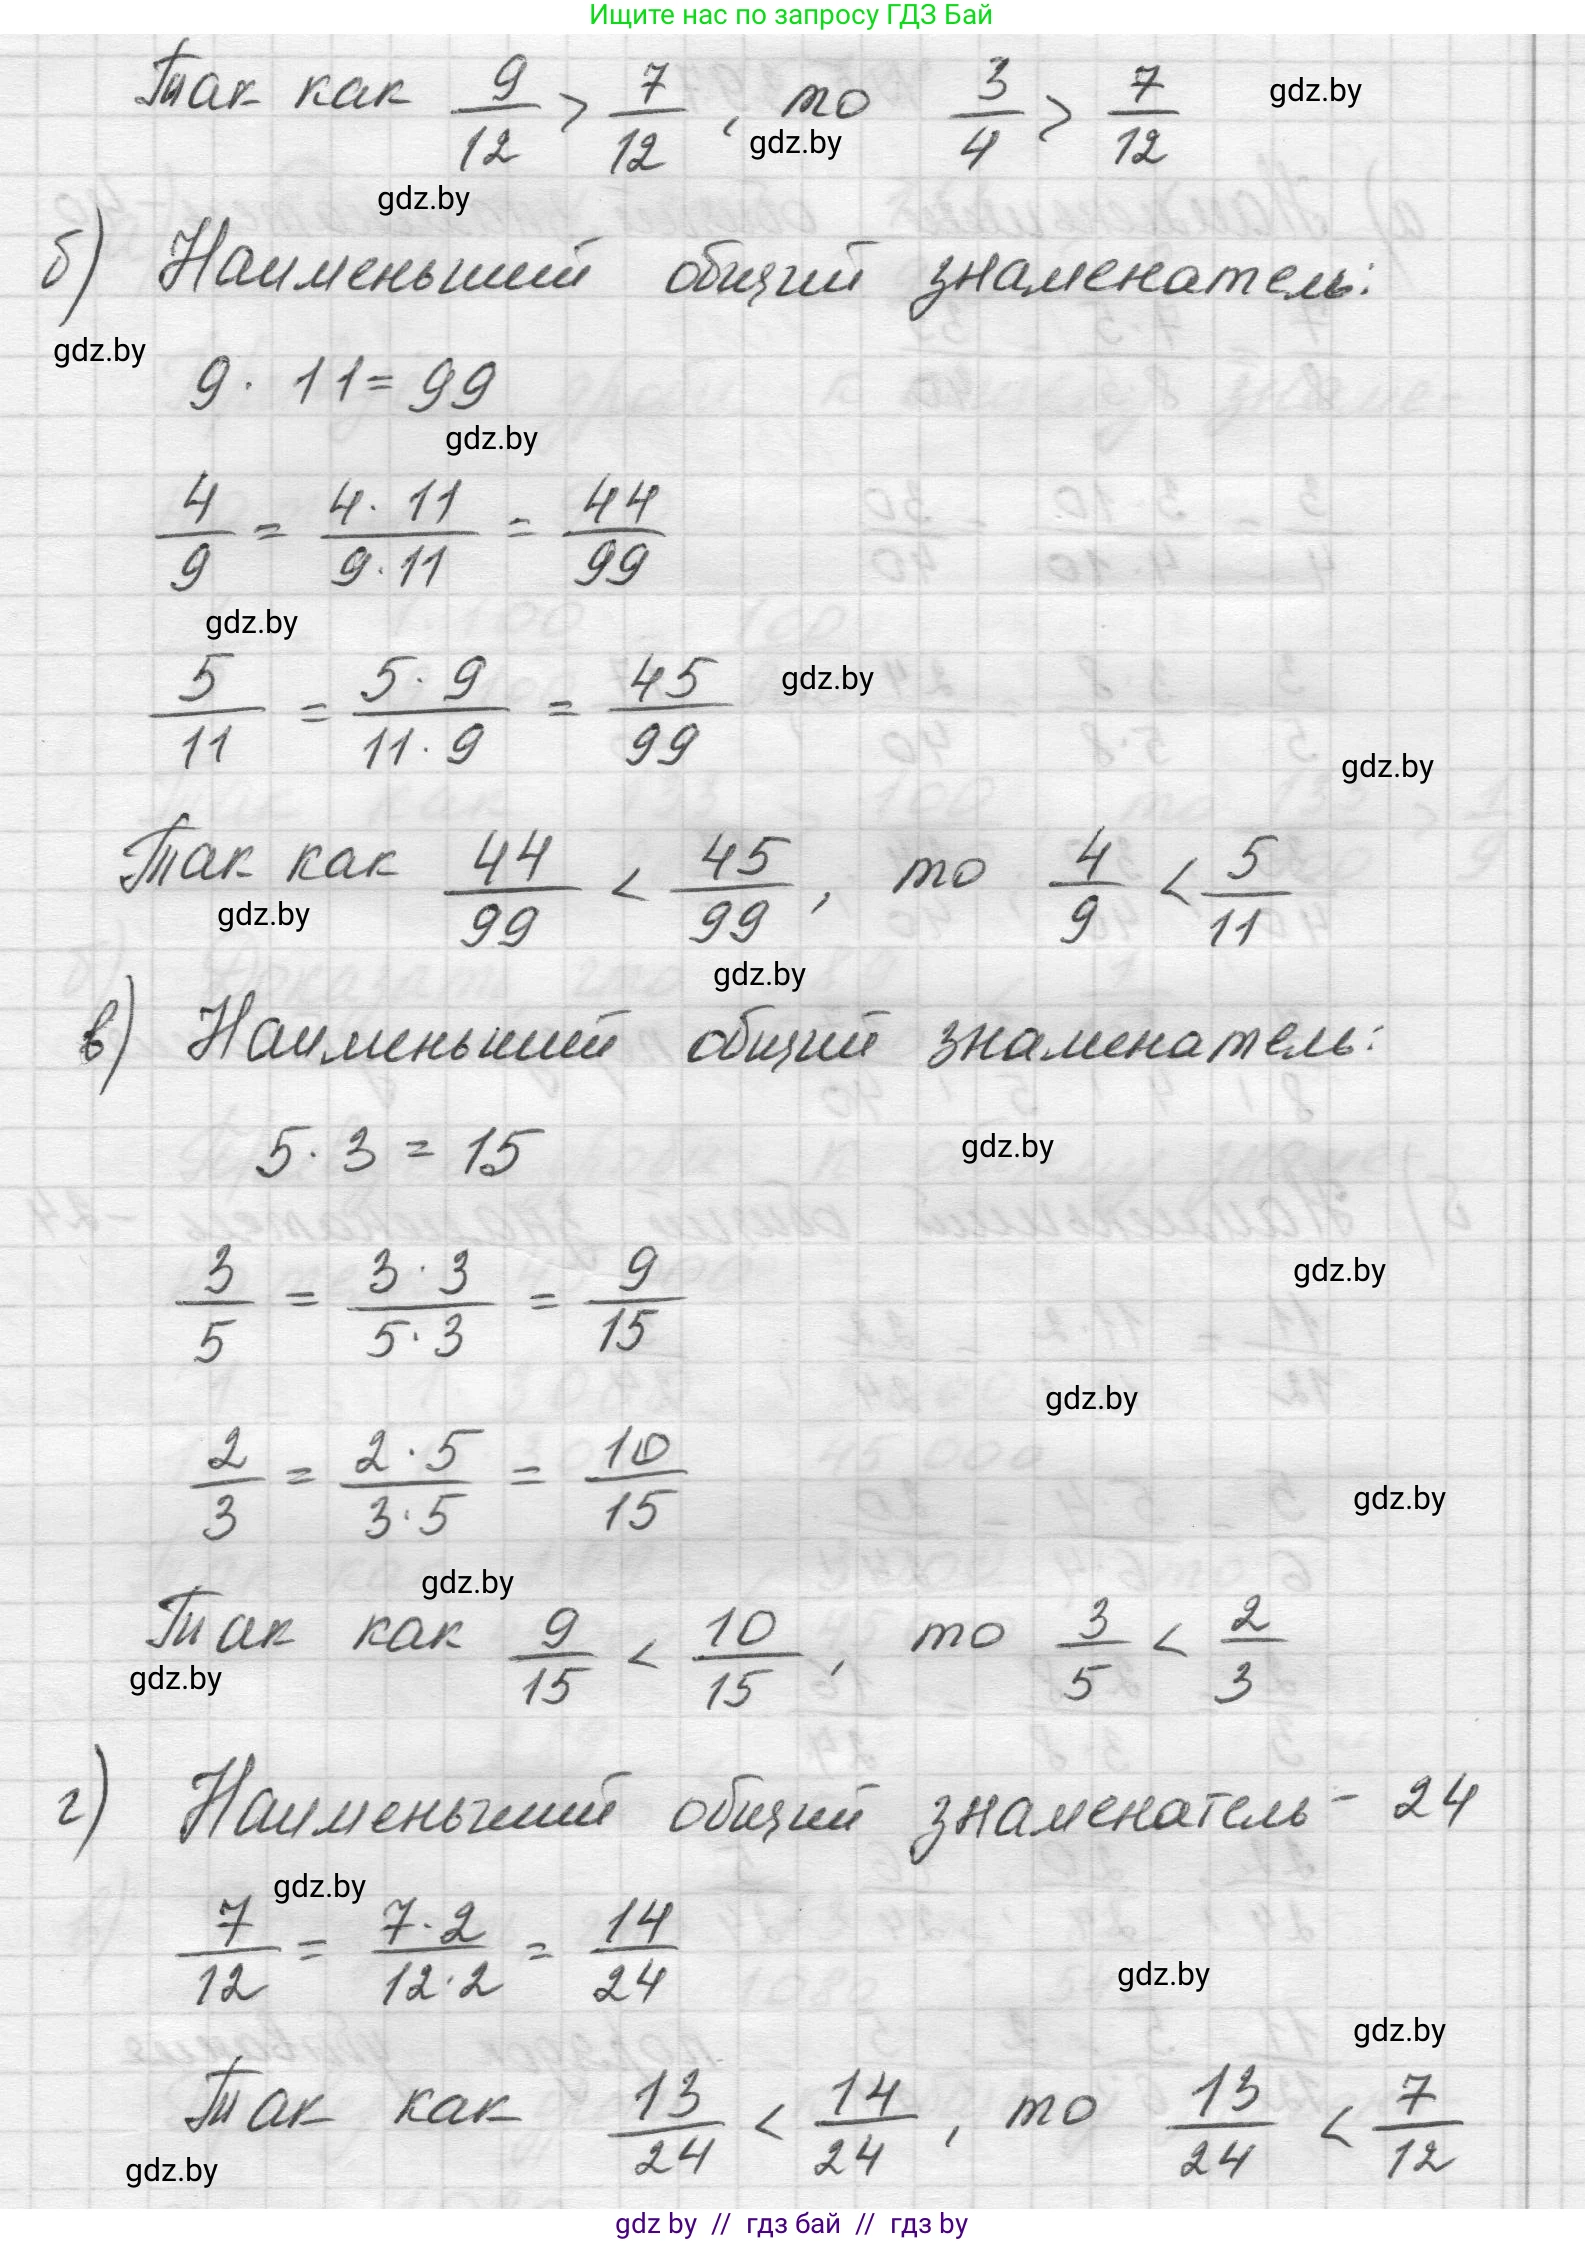 Ищите нас по запросу ГДЗ Бай
Так как 9/12 > 7/12, то 3/4 > 7/12
gdz.by
gdz.by
gdz.by
б) Наименьший общий знаменатель:
gdz.by
9 · 11 = 99
gdz.by
4/9 = 4·11/9·11 = 44/99
gdz.by
5/11 = 5·9/11·9 = 45/99
gdz.by
gdz.by
Так как 44/99 < 45/99, то 4/9 < 5/11
gdz.by
gdz.by
в) Наименьший общий знаменатель:
5 · 3 = 15
gdz.by
3/5 = 3·3/5·3 = 9/15
gdz.by
gdz.by
2/3 = 2·5/3·5 = 10/15
gdz.by
gdz.by
Так как 9/15 < 10/15, то 3/5 < 2/3
gdz.by
г) Наименьший общий знаменатель - 24
gdz.by
7/12 = 7·2/12·2 = 14/24
gdz.by
gdz.by
Так как 13/24 < 14/24, то 13/24 < 7/12
gdz.by
gdz by // гдз бай // гдз by